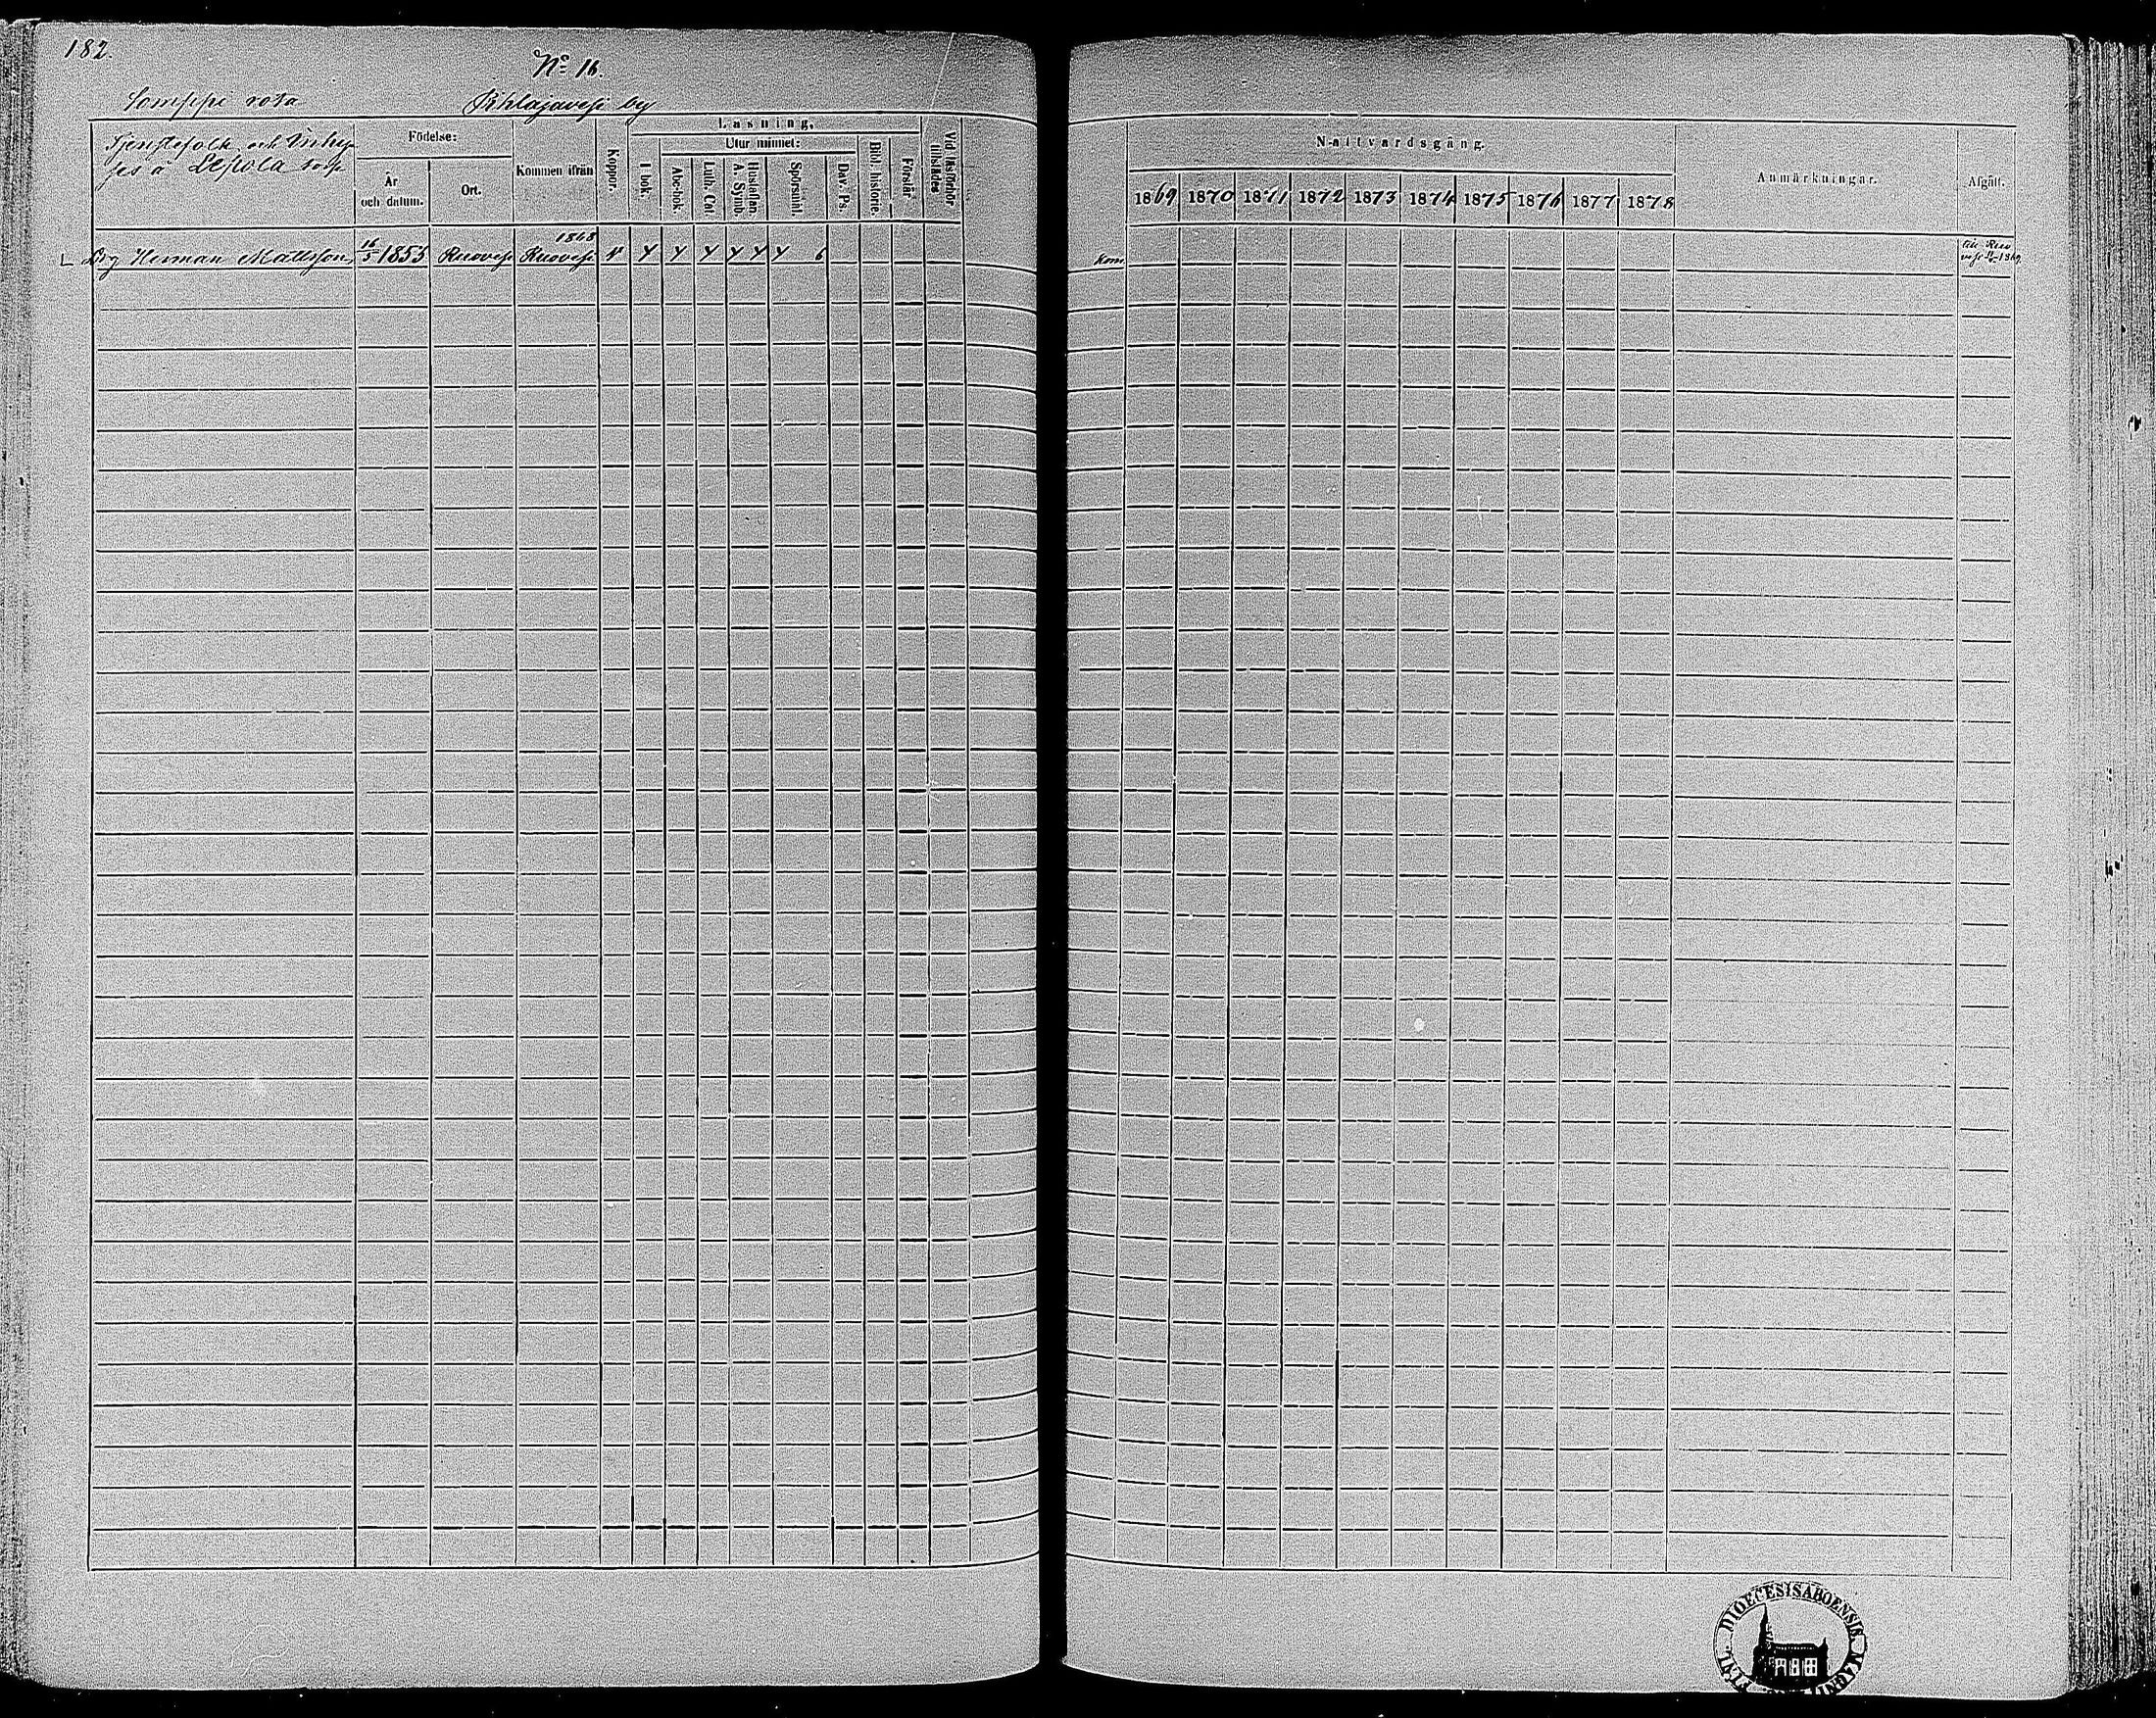 182.
No 16.
Lomppi rota Pihlajavesi by
Tjenstefolk och Inhy-
ses å Lepola torp
Födelse:
År
och datum.
Ort.
Kommen ifrån
Koppor.
Läsning.
I bok.
Utur minnet:
Abc-bok.
Luth. Cat.
Hustaflan.
A. Symb.
Spörsmål.
Dav. Ps.
Bibl. historie.
Förstår
Vid läsförhör
tillstädes
Nattvardsgång.
1869 1870 1871 1872 1873 1874 1875 1876 1877 1878
Anmärkningar.
Afgått.
Drg Herman Mattsson 16/5 1853 Ruovesi 1868 Ruovesi
6
kom.
till Ruo
vesi 1869
DIOECESIS ABOENSIS MAGNI
FINL.